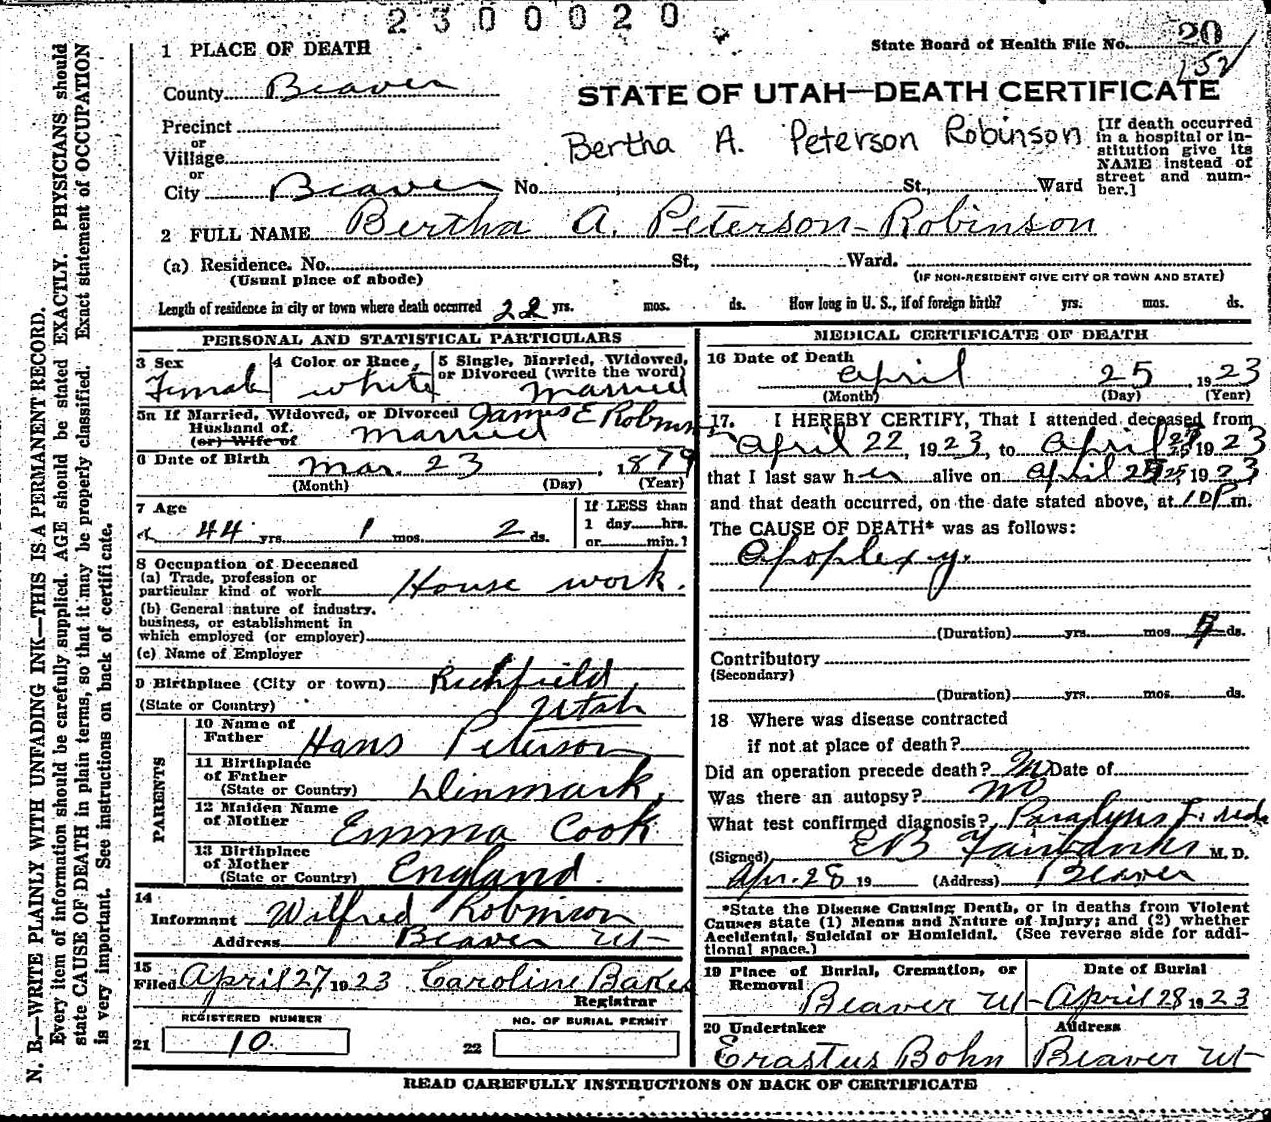 2300020
State Board of Health File No. 20
152
1 PLACE OF DEATH
County Beaver
STATE OF UTAH—DEATH CERTIFICATE
Precinct
or
Village
or
City Beaver No. St., Ward
Bertha A. Peterson Robinson
[If death occurred in a hospital or in-
stitution give its
NAME instead of
street and num-
ber.]
2 FULL NAME Bertha A. Peterson-Robinson
(a) Residence. No. St., Ward.
(Usual place of abode)
(IF NON-RESIDENT GIVE CITY OR TOWN AND STATE)
Length of residence in city or town where death occurred 22 yrs. mos. ds. How long in U. S., if of foreign birth? yrs. mos. ds.
PERSONAL AND STATISTICAL PARTICULARS
3 Sex Female
4 Color or Race, white
5 Single, Married, Widowed,
or Divorced (write the word)
married
5a If Married, Widowed, or Divorced James E Robinson
Husband of.
(or) Wife of married
6 Date of Birth Mar. 23, 1879
(Month) (Day) (Year)
7 Age
44 yrs. 1 mos. 2 ds.
If LESS than
1 day hrs.
or min.?
8 Occupation of Deceased
(a) Trade, profession or
particular kind of work House work.
(b) General nature of industry,
business, or establishment in
which employed (or employer)
(c) Name of Employer
9 Birthplace (City or town) Richfield
(State or Country) Utah
PARENTS
10 Name of
Father Hans Peterson
11 Birthplace
of Father
(State or Country) Dinmark,
12 Maiden Name
of Mother Emma Cook
13 Birthplace
of Mother
(State or Country) England.
14
Informant Wilfred Robinson
Address Beaver Ut
15
Filed April 27 1923 Caroline Baker
Registrar
REGISTERED NUMBER
21 10
NO. OF BURIAL PERMIT
22
MEDICAL CERTIFICATE OF DEATH
16 Date of Death
April 25, 1923
(Month) (Day) (Year)
17. I HEREBY CERTIFY, That I attended deceased from
April 22, 1923, to April 25 1923
that I last saw her alive on April 25, 1923
and that death occurred, on the date stated above, at 10 P m.
The CAUSE OF DEATH* was as follows:
Apoplexy.
(Duration) yrs. mos. ds.
Contributory
(Secondary)
(Duration) yrs. mos. ds.
18 Where was disease contracted
if not at place of death?
Did an operation precede death? no Date of
Was there an autopsy? no
What test confirmed diagnosis? Paralysis
(Signed) EB Fairbanks M. D.
Apr. 28 19 (Address) Beaver
*State the Disease Causing Death, or in deaths from Violent
Causes state (1) Means and Nature of Injury; and (2) whether
Accidental, Suicidal or Homicidal. (See reverse side for addi-
tional space.)
19 Place of Burial, Cremation, or
Removal
Beaver Ut
Date of Burial
April 28 1923
20 Undertaker
Erastus Bohn
Address
Beaver Ut
READ CAREFULLY INSTRUCTIONS ON BACK OF CERTIFICATE
N. B.—WRITE PLAINLY WITH UNFADING INK—THIS IS A PERMANENT RECORD.
Every item of information should be carefully supplied. AGE should be stated EXACTLY. PHYSICIANS should
state CAUSE OF DEATH in plain terms, so that it may be properly classified. Exact statement of OCCUPATION
is very important. See instructions on back of certificate.